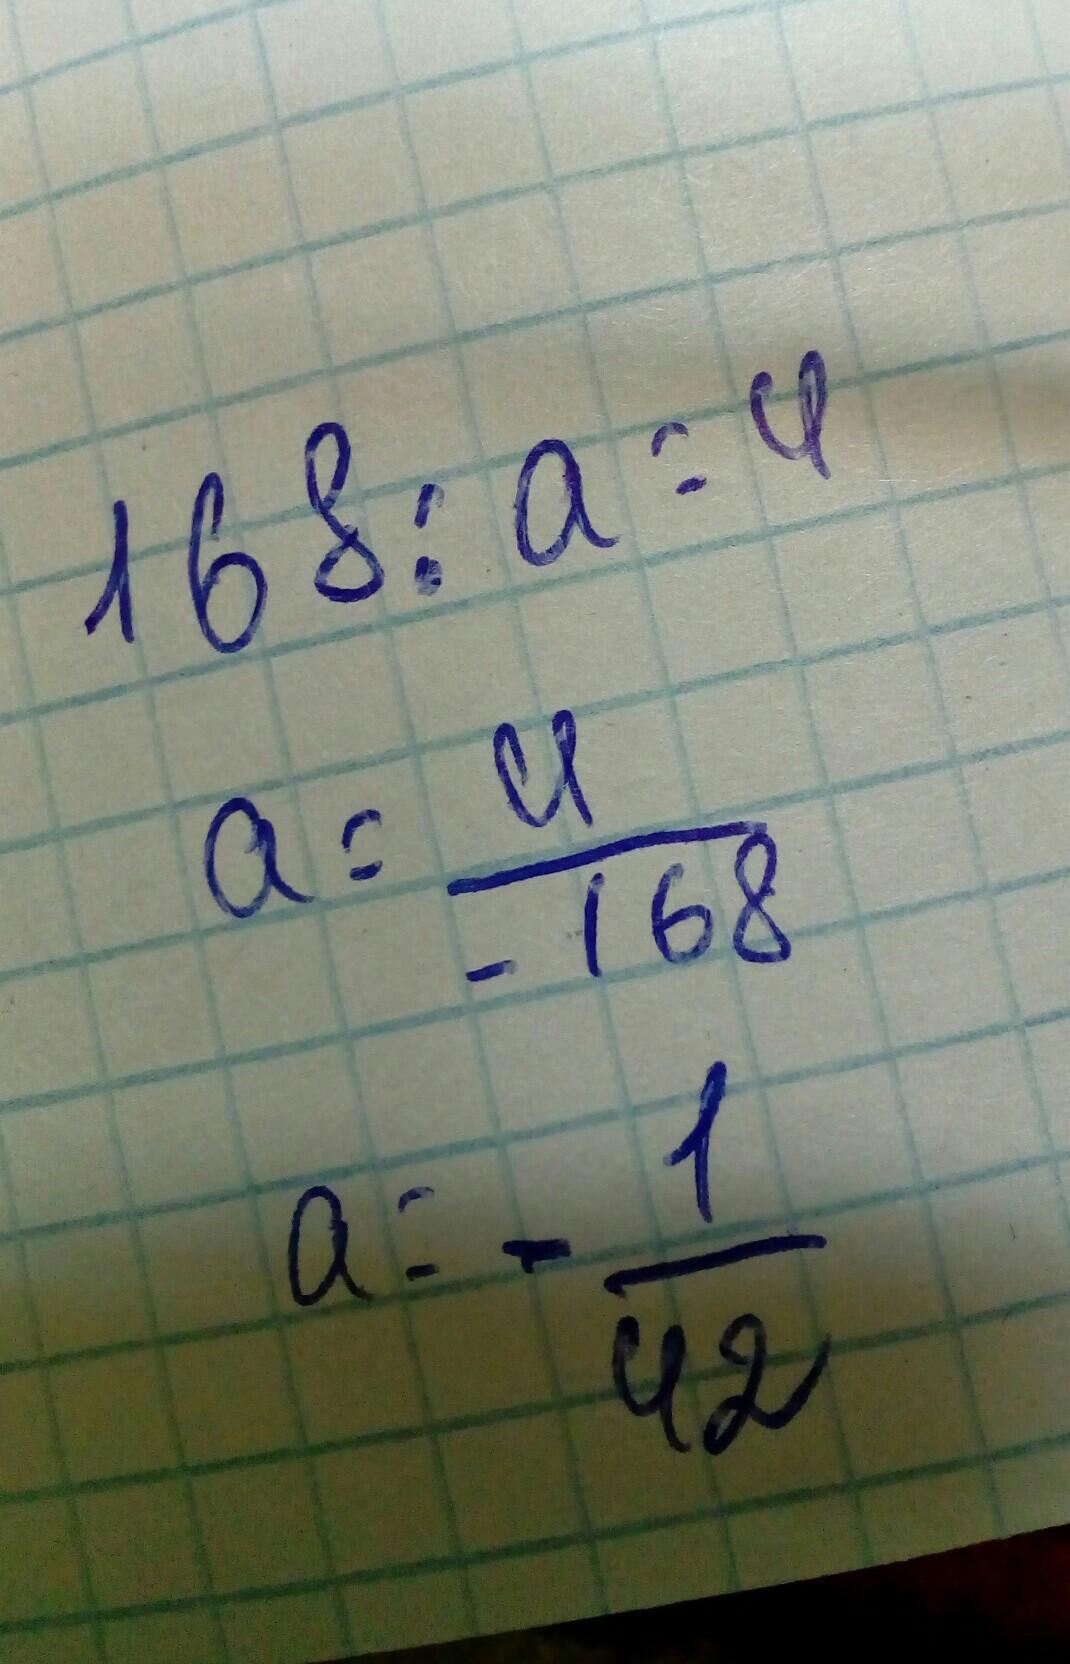 168:a=4
a=4/-168
a=-1/42